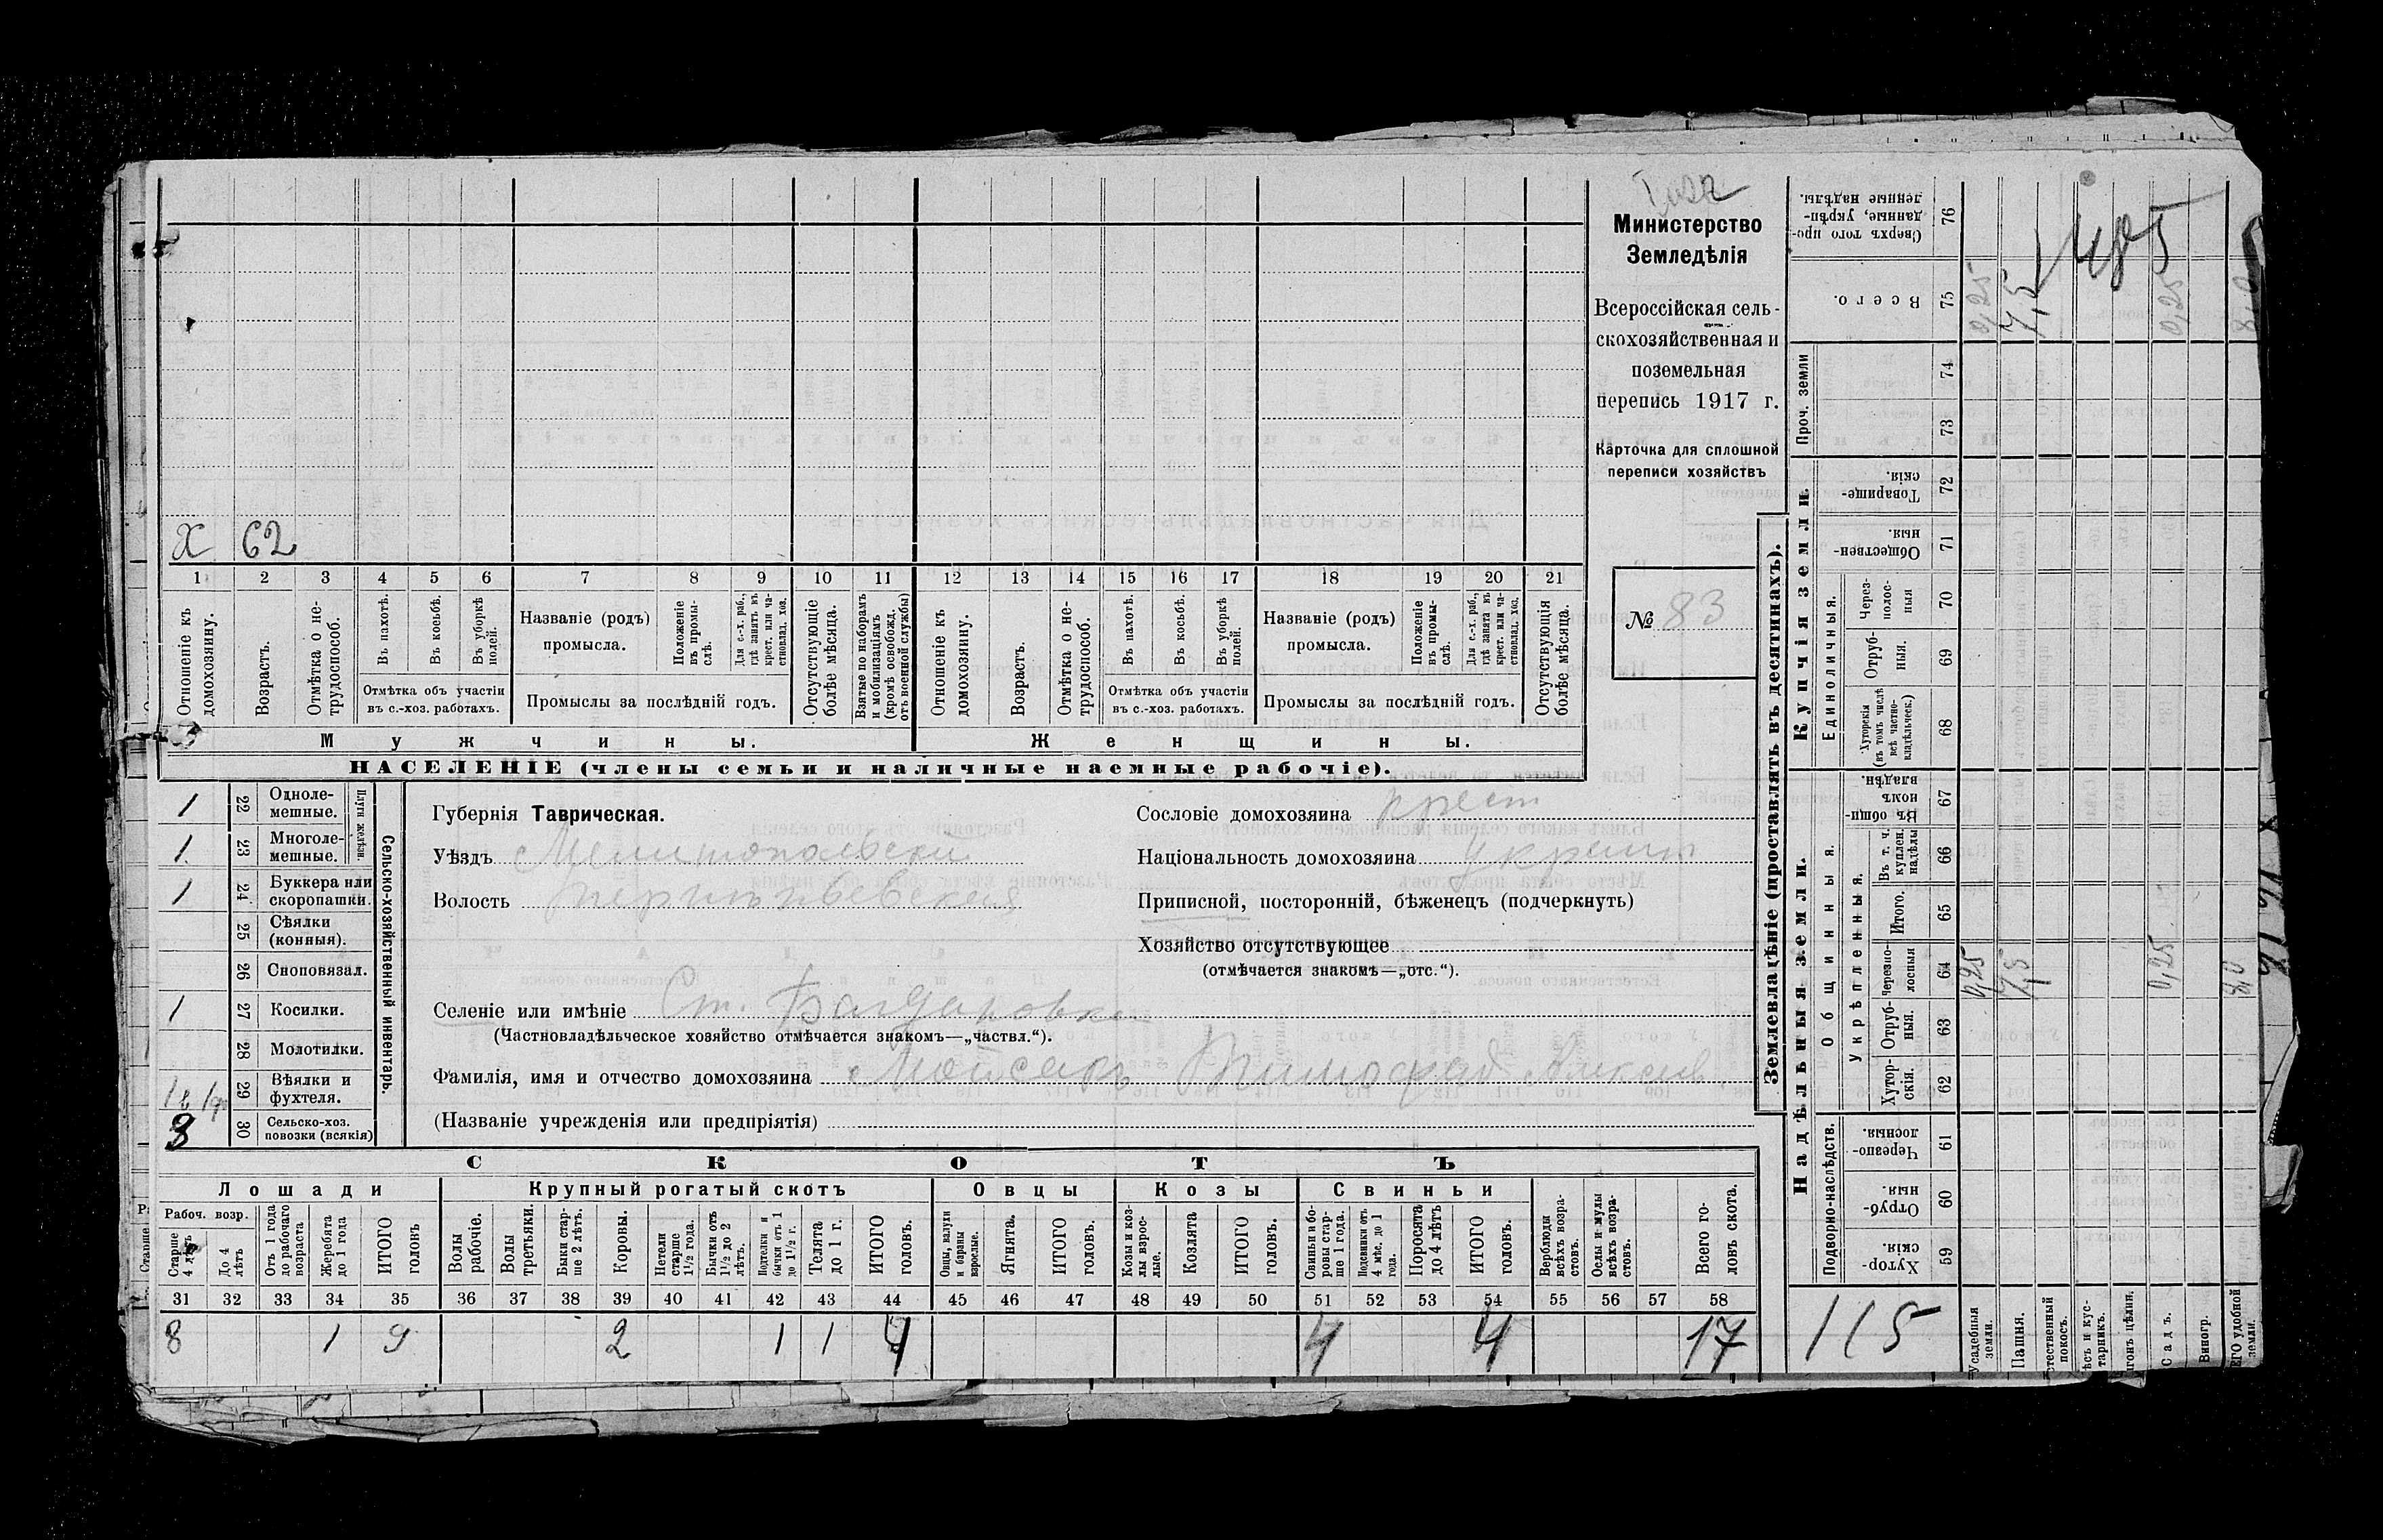 Министерство
Земледѣлія
Всероссійская сель-
скохозяйственная и
поземельная
перепись 1917 г.
Карточка для сплошной
переписи хозяйствъ
№ 83
X 62
1 2 3 4 5 6 7 8 9 10 11 12 13 14 15 16 17 18 19 20 21
Отношеніе къ домохозяину.
Возрастъ.
Отмѣтка о не-трудоспособ.
Въ пахотѣ.
Въ косьбѣ.
Въ уборкѣ полей.
Отмѣтка объ участіи
въ с.-хоз. работахъ.
Названіе (родъ)
промысла.
Положеніе въ промы-слѣ.
Для с.-х. раб., гдѣ занятъ въ крест. или ча-стновлад. хоз.
Промыслы за послѣдній годъ.
Отсутствующіе болѣе мѣсяца.
Взятые по наборамъ и мобилизаціямъ (кромѣ освобожд. отъ военной службы)
Отношеніе къ домохозяину.
Возрастъ.
Отмѣтка о не-трудоспособ.
Въ пахотѣ.
Въ косьбѣ.
Въ уборкѣ полей.
Отмѣтка объ участіи
въ с.-хоз. работахъ.
Названіе (родъ)
промысла.
Положеніе въ промы-слѣ.
Для с.-х. раб., гдѣ занята въ крест. или ча-стновлад. хоз.
Промыслы за послѣдній годъ.
Отсутствующія болѣе мѣсяца.
Мужчины.
Женщины.
НАСЕЛЕНІЕ (члены семьи и наличные наемные рабочіе).
Сельско-хозяйственный инвентарь.
Плуги желѣзн.
1 22 Одноле-мешные.
1 23 Многоле-мешные.
1 24 Буккера или скоропашки.
25 Сѣялки (конныя).
26 Сноповязал.
1 27 Косилки.
28 Молотилки.
29 Вѣялки и фухтеля.
3 30 Сельско-хоз. повозки (всякія)
Губернія Таврическая.
Уѣздъ Мелитопольскій
Волость
Селеніе или имѣніе Ст. Богдановка
(Частновладѣльческое хозяйство отмѣчается знакомъ—„частвл.“).
Фамилія, имя и отчество домохозяина
(Названіе учрежденія или предпріятія)
Сословіе домохозяина крест
Національность домохозяина
Приписной, посторонній, бѣженецъ (подчеркнуть)
Хозяйство отсутствующее
(отмѣчается знакомъ—„отс.“).
СКОТЪ
Лошади
Крупный рогатый скотъ
Овцы
Козы
Свиньи
Рабоч. возр.
Старше 4 лѣтъ
До 4 лѣтъ
Отъ 1 года до рабочаго возраста
Жеребята до 1 года
ИТОГО головъ
Волы рабочіе.
Волы третьяки.
Быки стар-ше 2 лѣтъ.
Коровы.
Нетели старше 1½ года.
Бычки отъ 1½ до 2 лѣтъ.
Подтелки и бычки отъ 1 до 1½ г.
Телята до 1 г.
ИТОГО головъ.
Овцы, валухи и бараны взрослые.
Ягнята.
ИТОГО головъ.
Козы и коз-лы взрос-лые.
Козлята
ИТОГО головъ.
Свиньи и бо-ровы стар-ше 1 года.
Подсвинки отъ 4 мѣс. до 1 года.
Поросята до 4 лѣтъ
ИТОГО головъ.
Верблюды всѣхъ возра-стовъ.
Ослы и мулы всѣхъ возра-стовъ.
Всего го-ловъ скота.
31 32 33 34 35 36 37 38 39 40 41 42 43 44 45 46 47 48 49 50 51 52 53 54 55 56 57 58
8 1 9 2 1 1 4 4 4 17
Землевладѣніе (проставлять въ десятинахъ).
Купчія земли.
Надѣльныя земли.
Сверхъ того про-данные, укрѣп-ленные надѣлы. 76
Всего. 75
Проч. земли 74
73
Товарище-скія. 72
Обществен-ныя. 71
Единоличныя.
Через-полос-ныя 70
Отруб-ныя. 69
Хуторскія (въ томъ числѣ всѣ частно-владѣльческ.) 68
Общинныя.
Въ общи-номъ владѣн. 67
Укрѣпленныя.
Въ т. ч. куплен. надѣлы 66
Итого. 65
Черезпо-лосныя 64
Отруб-ныя. 63
Хутор-скія. 62
Подворно-наслѣдств.
Черезпо-лосныя. 61
Отруб-ныя. 60
Хутор-скія. 59
0,25 7,5 0,25 8,0
0,25 7,5 0,25 8,0
115
Усадебныя земли.
Пашня.
Естественный покосъ.
Садъ.
Виногр.